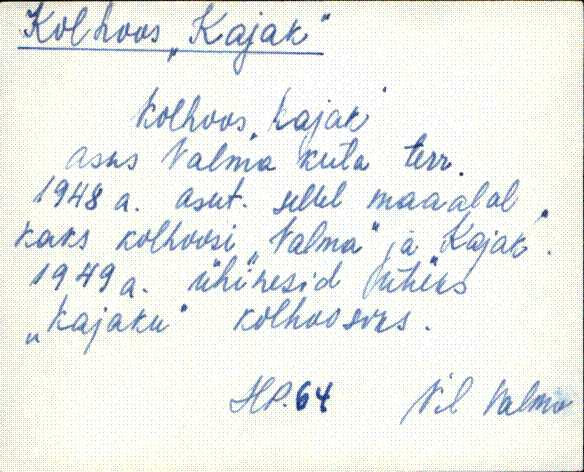 Kolhoos „Kajak"
Kolhoos „Kajak"
asus Valma küla terr.
1948 a. asut. sellel maaalal
kaks kolhoosi „Valma" ja „Kajak".
1949 a. ühinesid ühiseks
„Kajaku" kolhoosiks.
HP. 64 Vil Valma